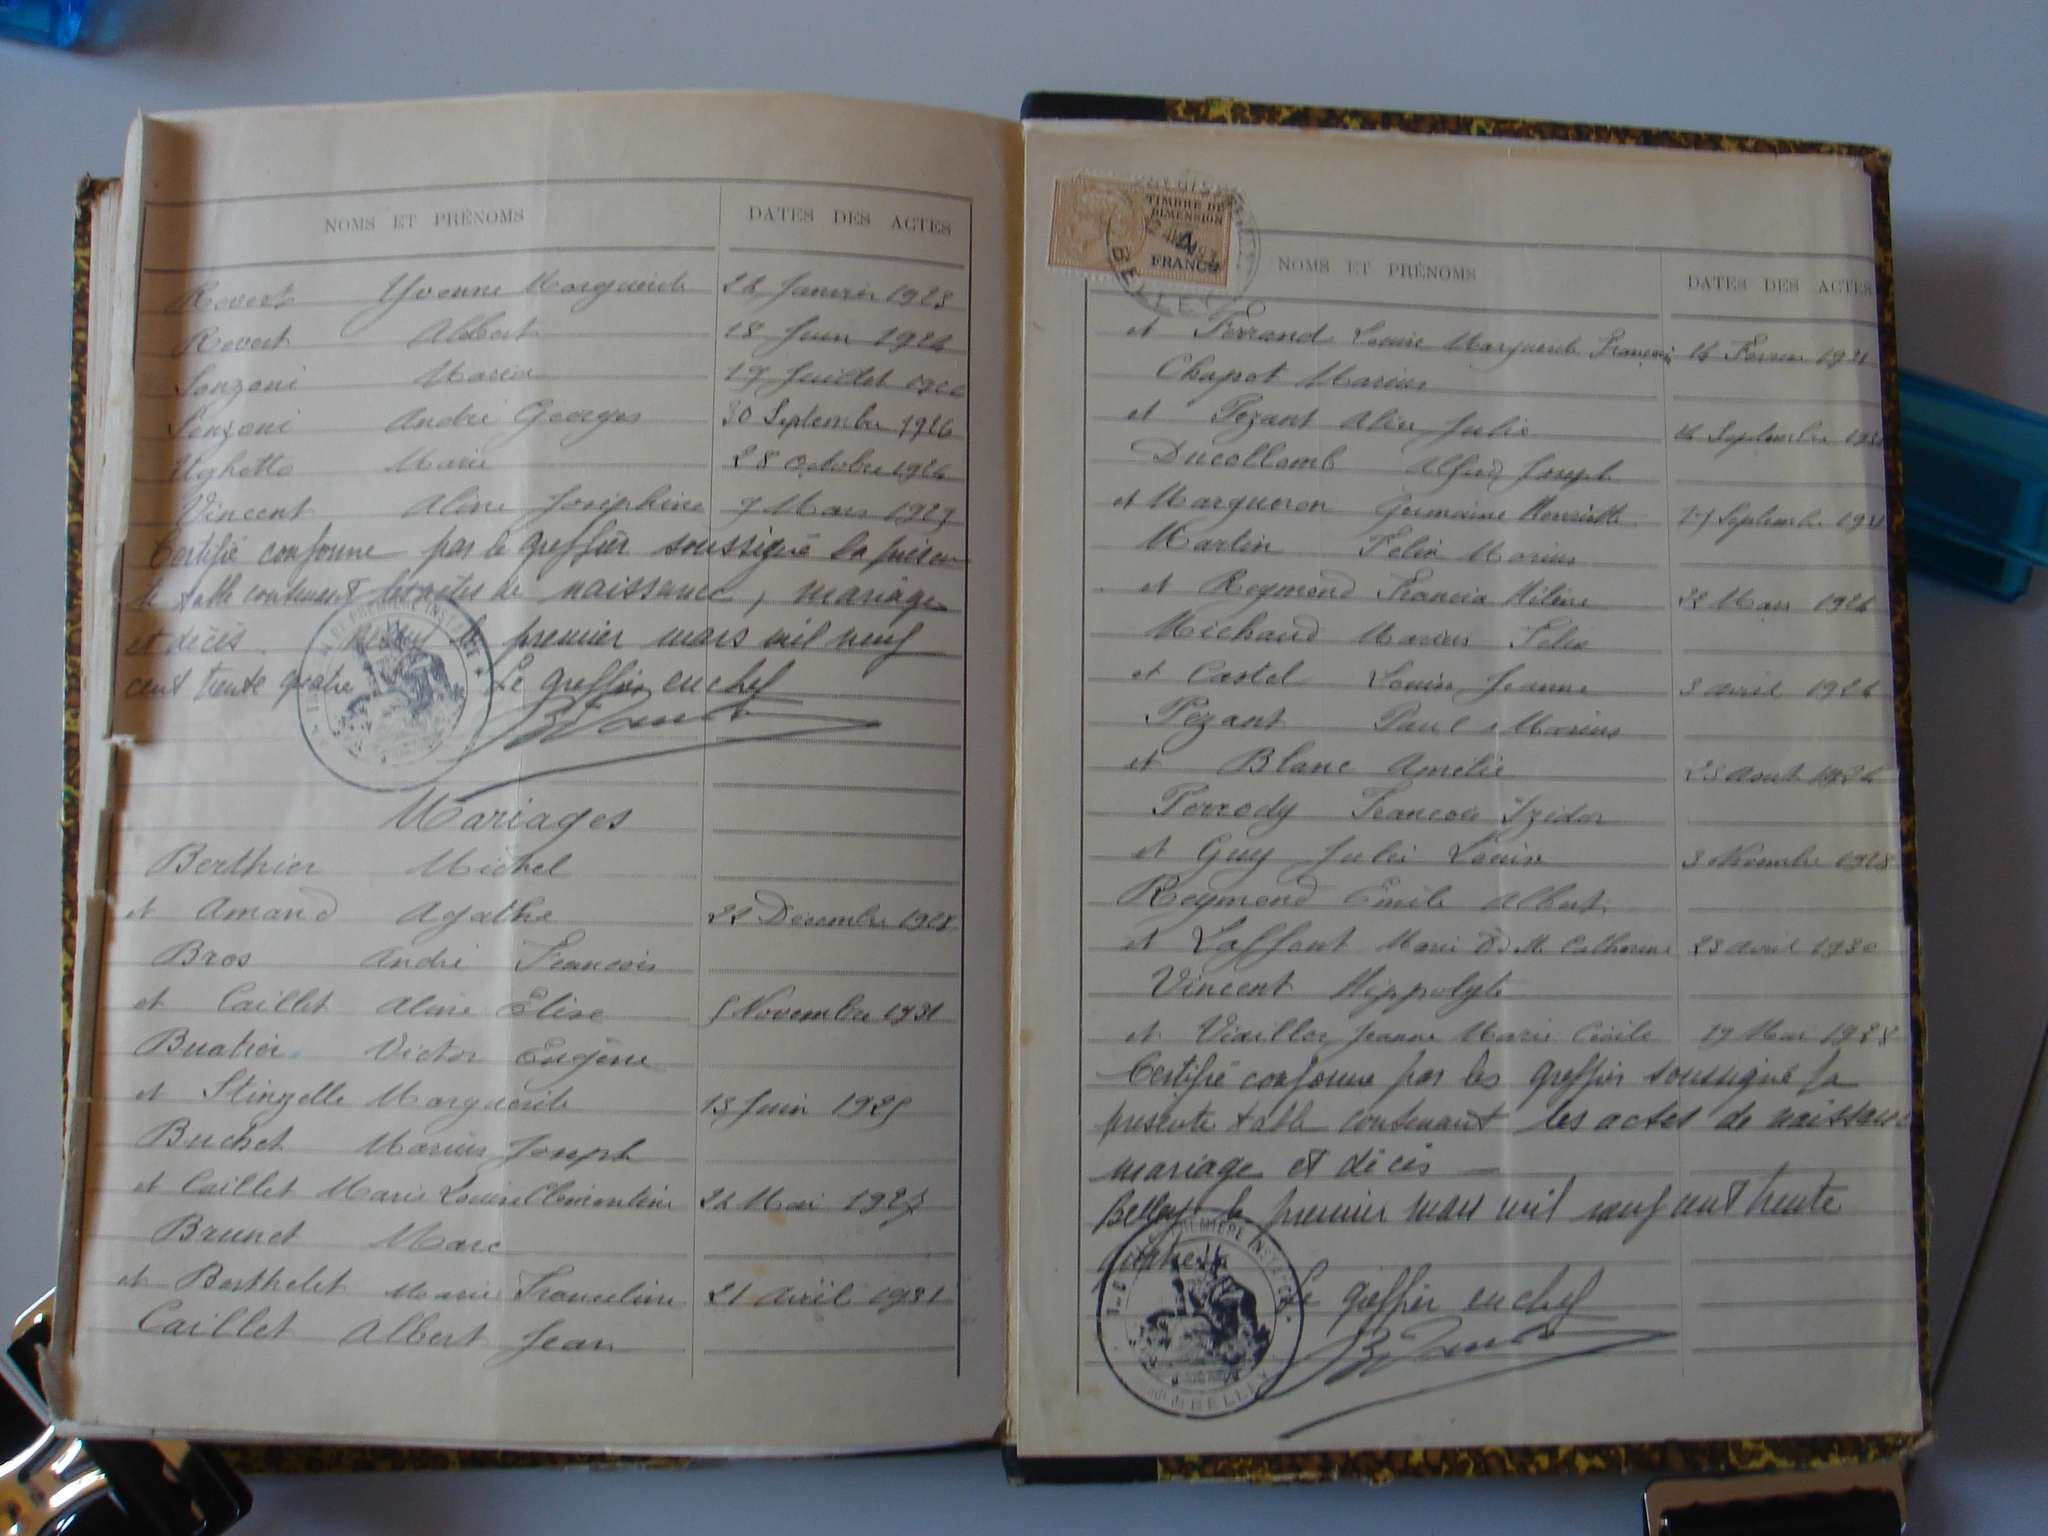 NOMS ET PRÉNOMS DATES DES ACTES
Revert Yvonne Marguerite 22 Janvier 1923
Revert Albert 18 Juin 1924
Sonzoni Maria 19 Juillet
Sonzoni André Georges 30 Septembre 1926
Ughetto Marie 28 Octobre 1926
Vincent Aline Joséphine 7 Mars 1927
Certifié conforme par le greffier soussigné la présen
te table contenant les actes de naissance, mariage
et décès. Belley le premier mars mil neuf
cent trente quatre Le greffier en chef
PREMIERE INSTANCE
Mariages
Berthier Michel
et Amand Agathe 22 Décembre 1928
Bros André François
et Caillet Aline Elise 5 Novembre 1931
Buatier Victor Eugène
et Stinzelle Marguerite 13 Juin 1925
Buchet Marius Joseph
et Caillet Marie Louise Clémentine 24 Mai 1927
Brunet Marc
et Berthelet Marie Franceline 21 Avril 1931
Caillet Albert Jean
TIMBRE DE
DIMENSION
4
FRANCS
BELLEY
NOMS ET PRÉNOMS DATES DES ACTES
et Ferrand Louise Marguerite 16 Février 1931
Chapot Marius
et Pezant Alice Julie 16 Septembre
Ducollomb Alfred Joseph
et Margueron Germaine Henriette Septembre
Martin Felix Marius
et Reymond Francia Hélène 22 Mars 1924
Michaud Marius Felix
et Castel Louise Jeanne 3 avril 1926
Pezant Paul Marius
et Blanc Amélie 23 Aout 1924
Perrody François Izidor
et Guy Julie Louise 3 Novembre 1928
Reymond Emile Albert
et Laffont Marie Catherine 23 avril 1930
Vincent Hippolyte
et Viaillor Jeanne Marie Cécile 19 Mai 1928
Certifié conforme par les greffier soussigné la
présente table contenant les actes de naissance
mariage et décès
Belley le premier mars mil neuf cent trente
quatre
Le greffier en chef
PREMIERE INSTANCE
BELLEY